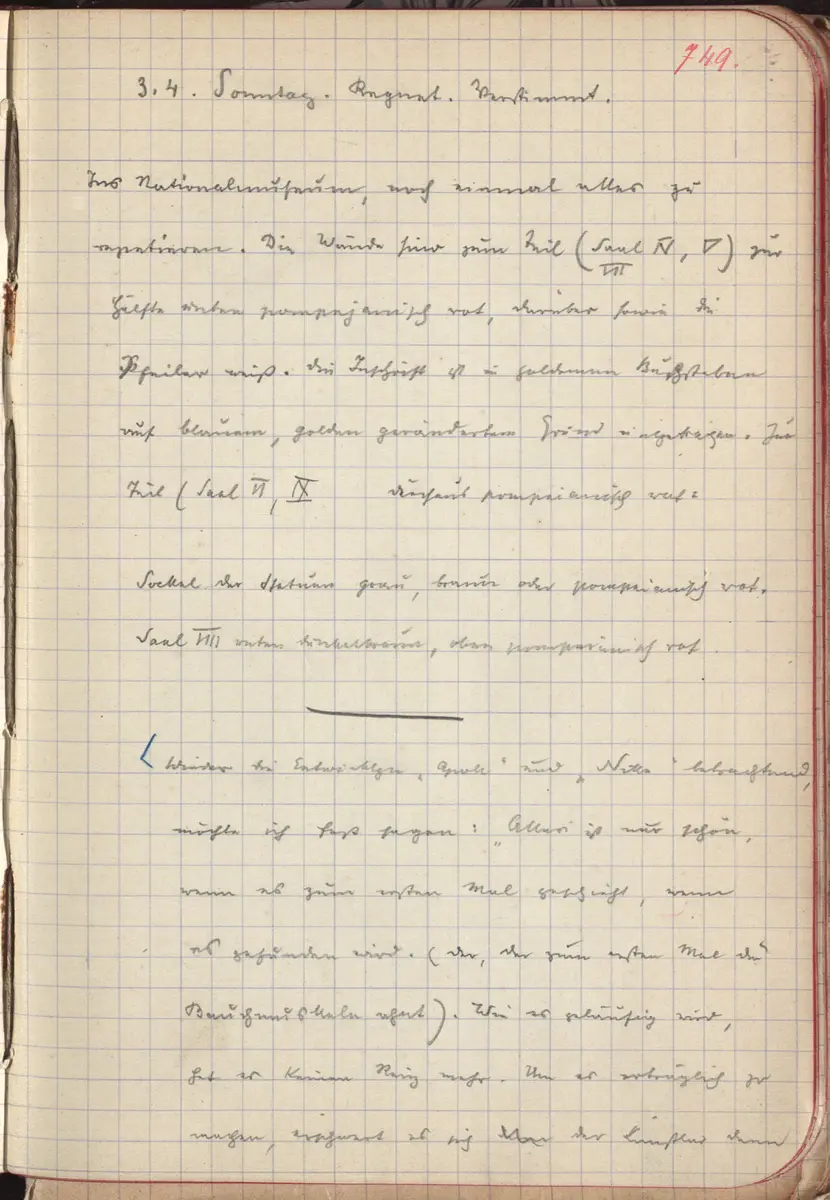 749.
3.4. Sonntag. Regnet. Verstimmt.
Ins Nationalmuseum, noch einmal alles zu
repetieren. Die Wände sind zum Teil (Saal IV, V) zur
VII
Hälfte unten pompejanisch rot, darüber sowie die
Pfeiler weiß. Die Inschrift ist in goldenen Buchstaben
auf blauem, golden gerändertem Grund eingetragen. Zum
Teil (Saal VI, IX durchaus pompeianisch rot:
Sockel der Statuen grau, braun oder pompeianisch rot.
Saal VIII unten dunkelbraun, oben pompeianisch rot.
Wieder die "Apoll" und "Nike" betrachtend,
möchte ich fast sagen: "Alles ist nur schön,
wenn es zum ersten Mal geschieht, wenn
es gefunden wird. (der, der zum ersten Mal die
Bauchmuskeln ahnt). Wie es geläufig wird,
hat es keinen Reiz mehr. Um es erträglich zu
machen, erschwert es sich der Künstler dann